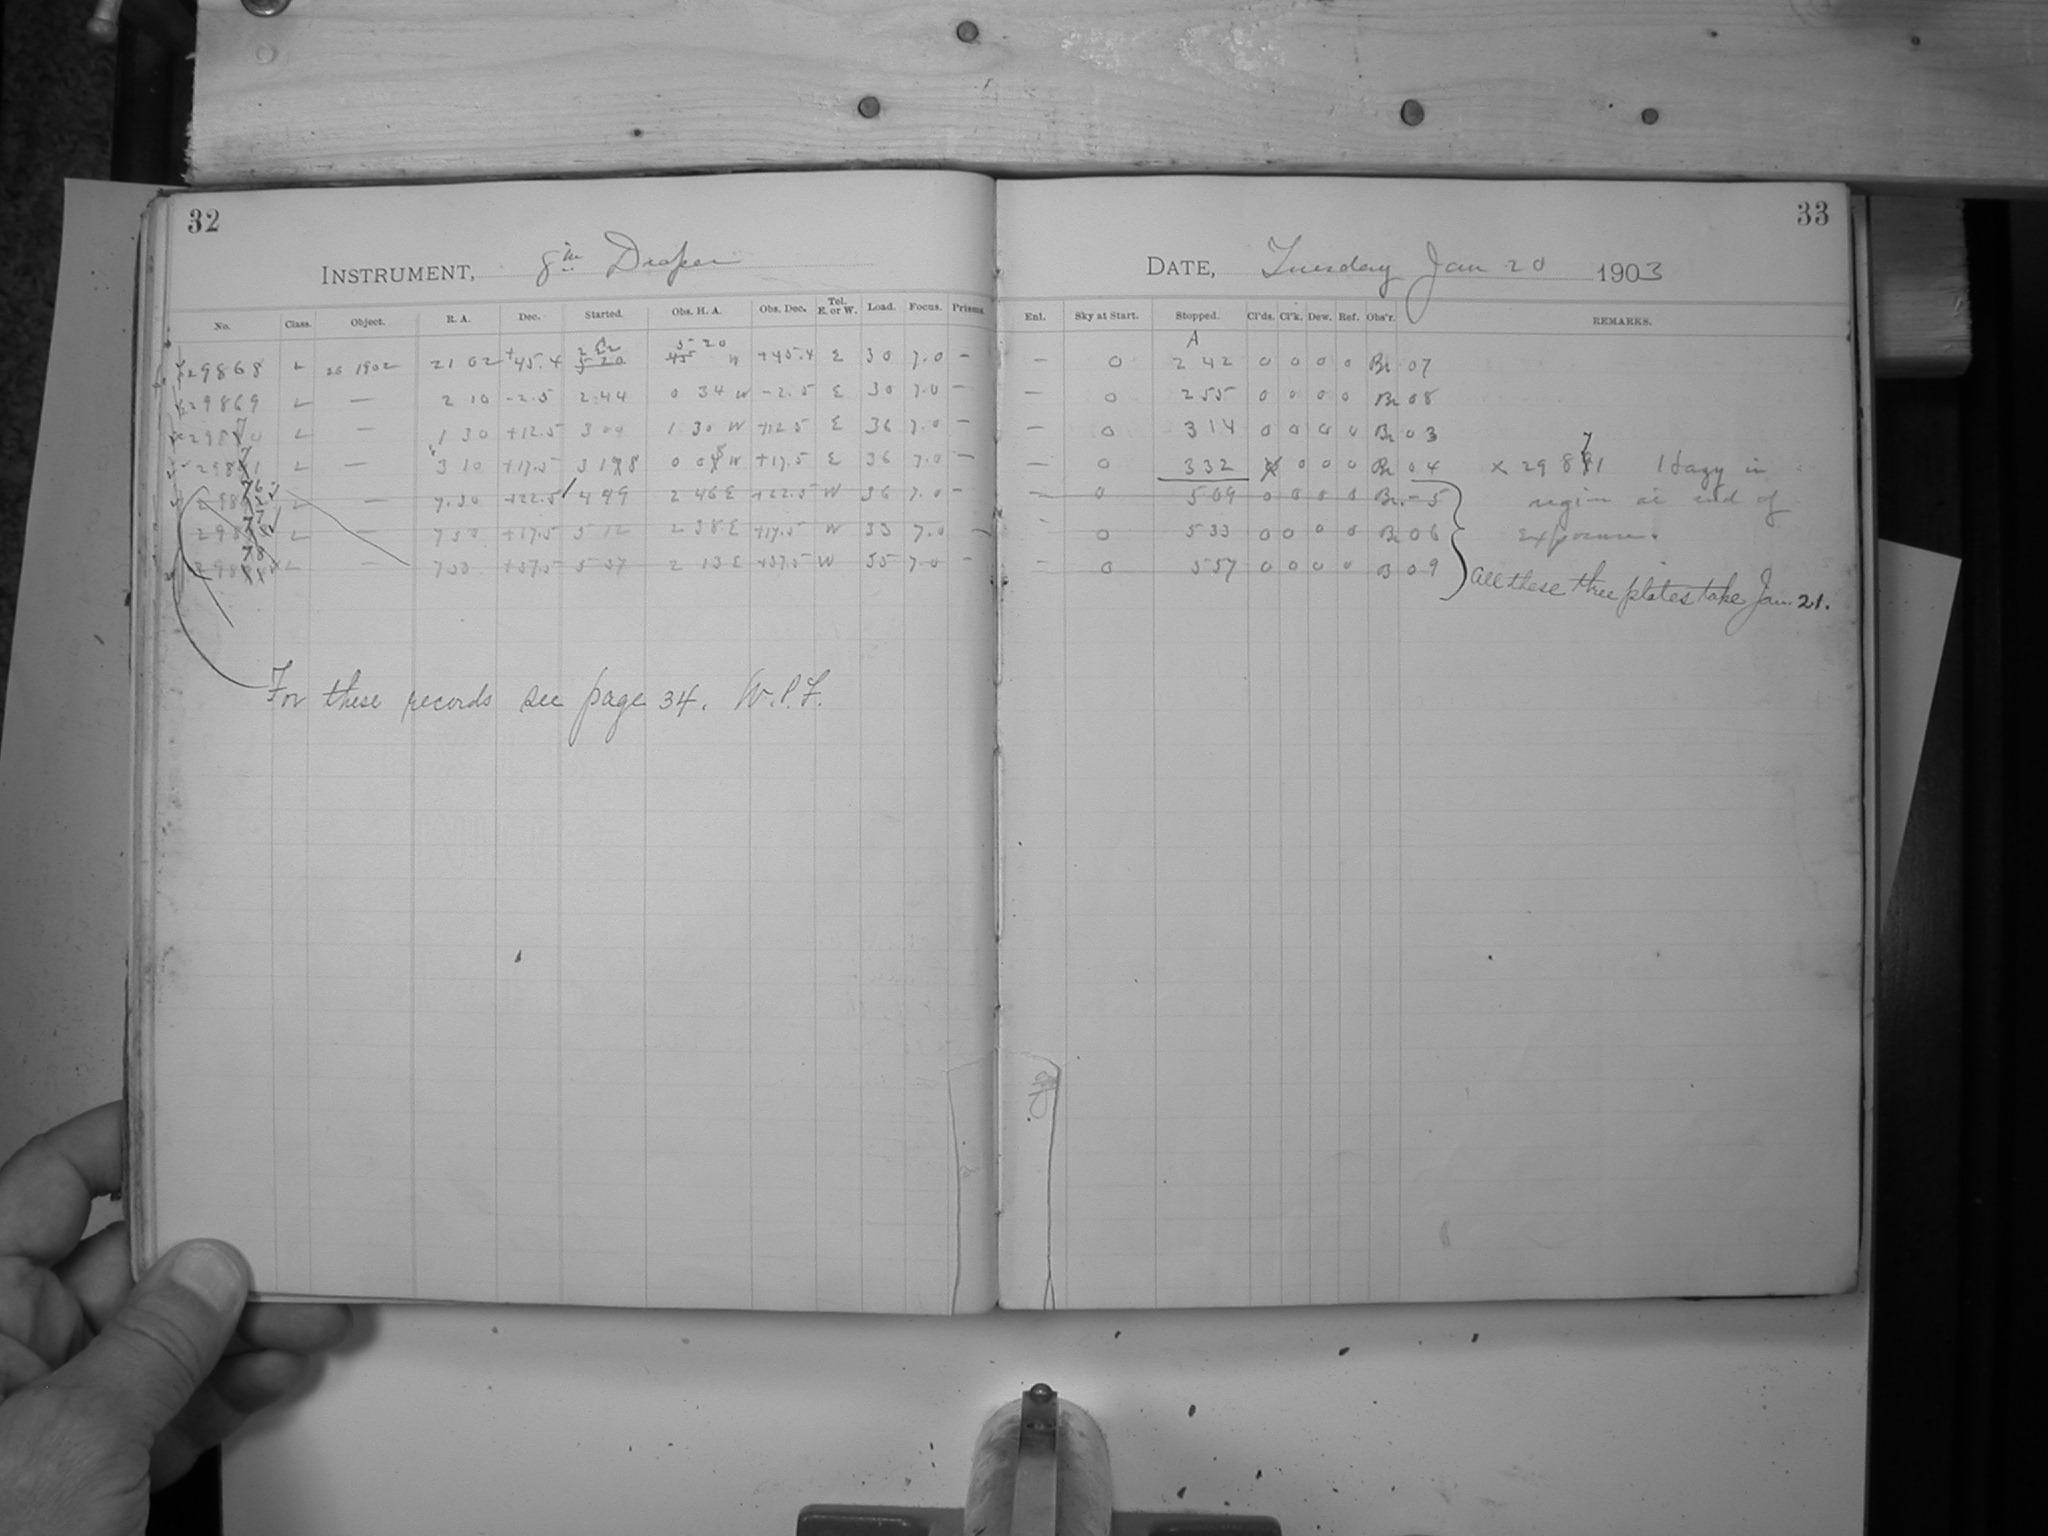 32
INSTRUMENT, 8 in Draper
No. Class. Object. R. A. Dec. Started. Obs. H. A. Obs. Dec. Tel. E. or W. Load. Focus. Prisms.
29868 L 1902 21 02 +45.4 5 20 W +45.4 E 30 7.0 —
29869 L — 2 10 -2.5 2 44 0 34 W -2.5 E 30 7.0 —
29870 L — 1 30 +12.5 3 00 1 30 W +12.5 E 36 7.0 —
29871 L — 3 10 +17.5 3 18 0 08 W +17.5 E 36 7.0 —
L — 7.30 +22.5 4 49 2 46 E +22.5 W 36 7.0 —
L — 7 50 +17.5 5 12 2 38 E +17.5 W 33 7.0 —
L — +37.5 5 37 2 13 E +37.5 W 7.0 —
For these records see page 34. W.P.F.
33
DATE, Tuesday Jan 20 1903
Enl. Sky at Start. Stopped. Cl'ds. Cl'k. Dew. Ref. Obs'r. REMARKS.
A
— 0 2 42 0 0 0 0 Br 07
— 0 2 55 0 0 0 0 Br 08
— 0 3 14 0 0 0 0 Br 03
— 0 3 32 0 0 0 Br 04 x 29871 Hazy in
— 0 5 09 0 0 0 0 Br - 5 region at end of
— 0 5 33 0 0 0 0 Br 06 exposure.
— 0 5 57 0 0 0 0 B 09
All these three plates take Jan. 21.